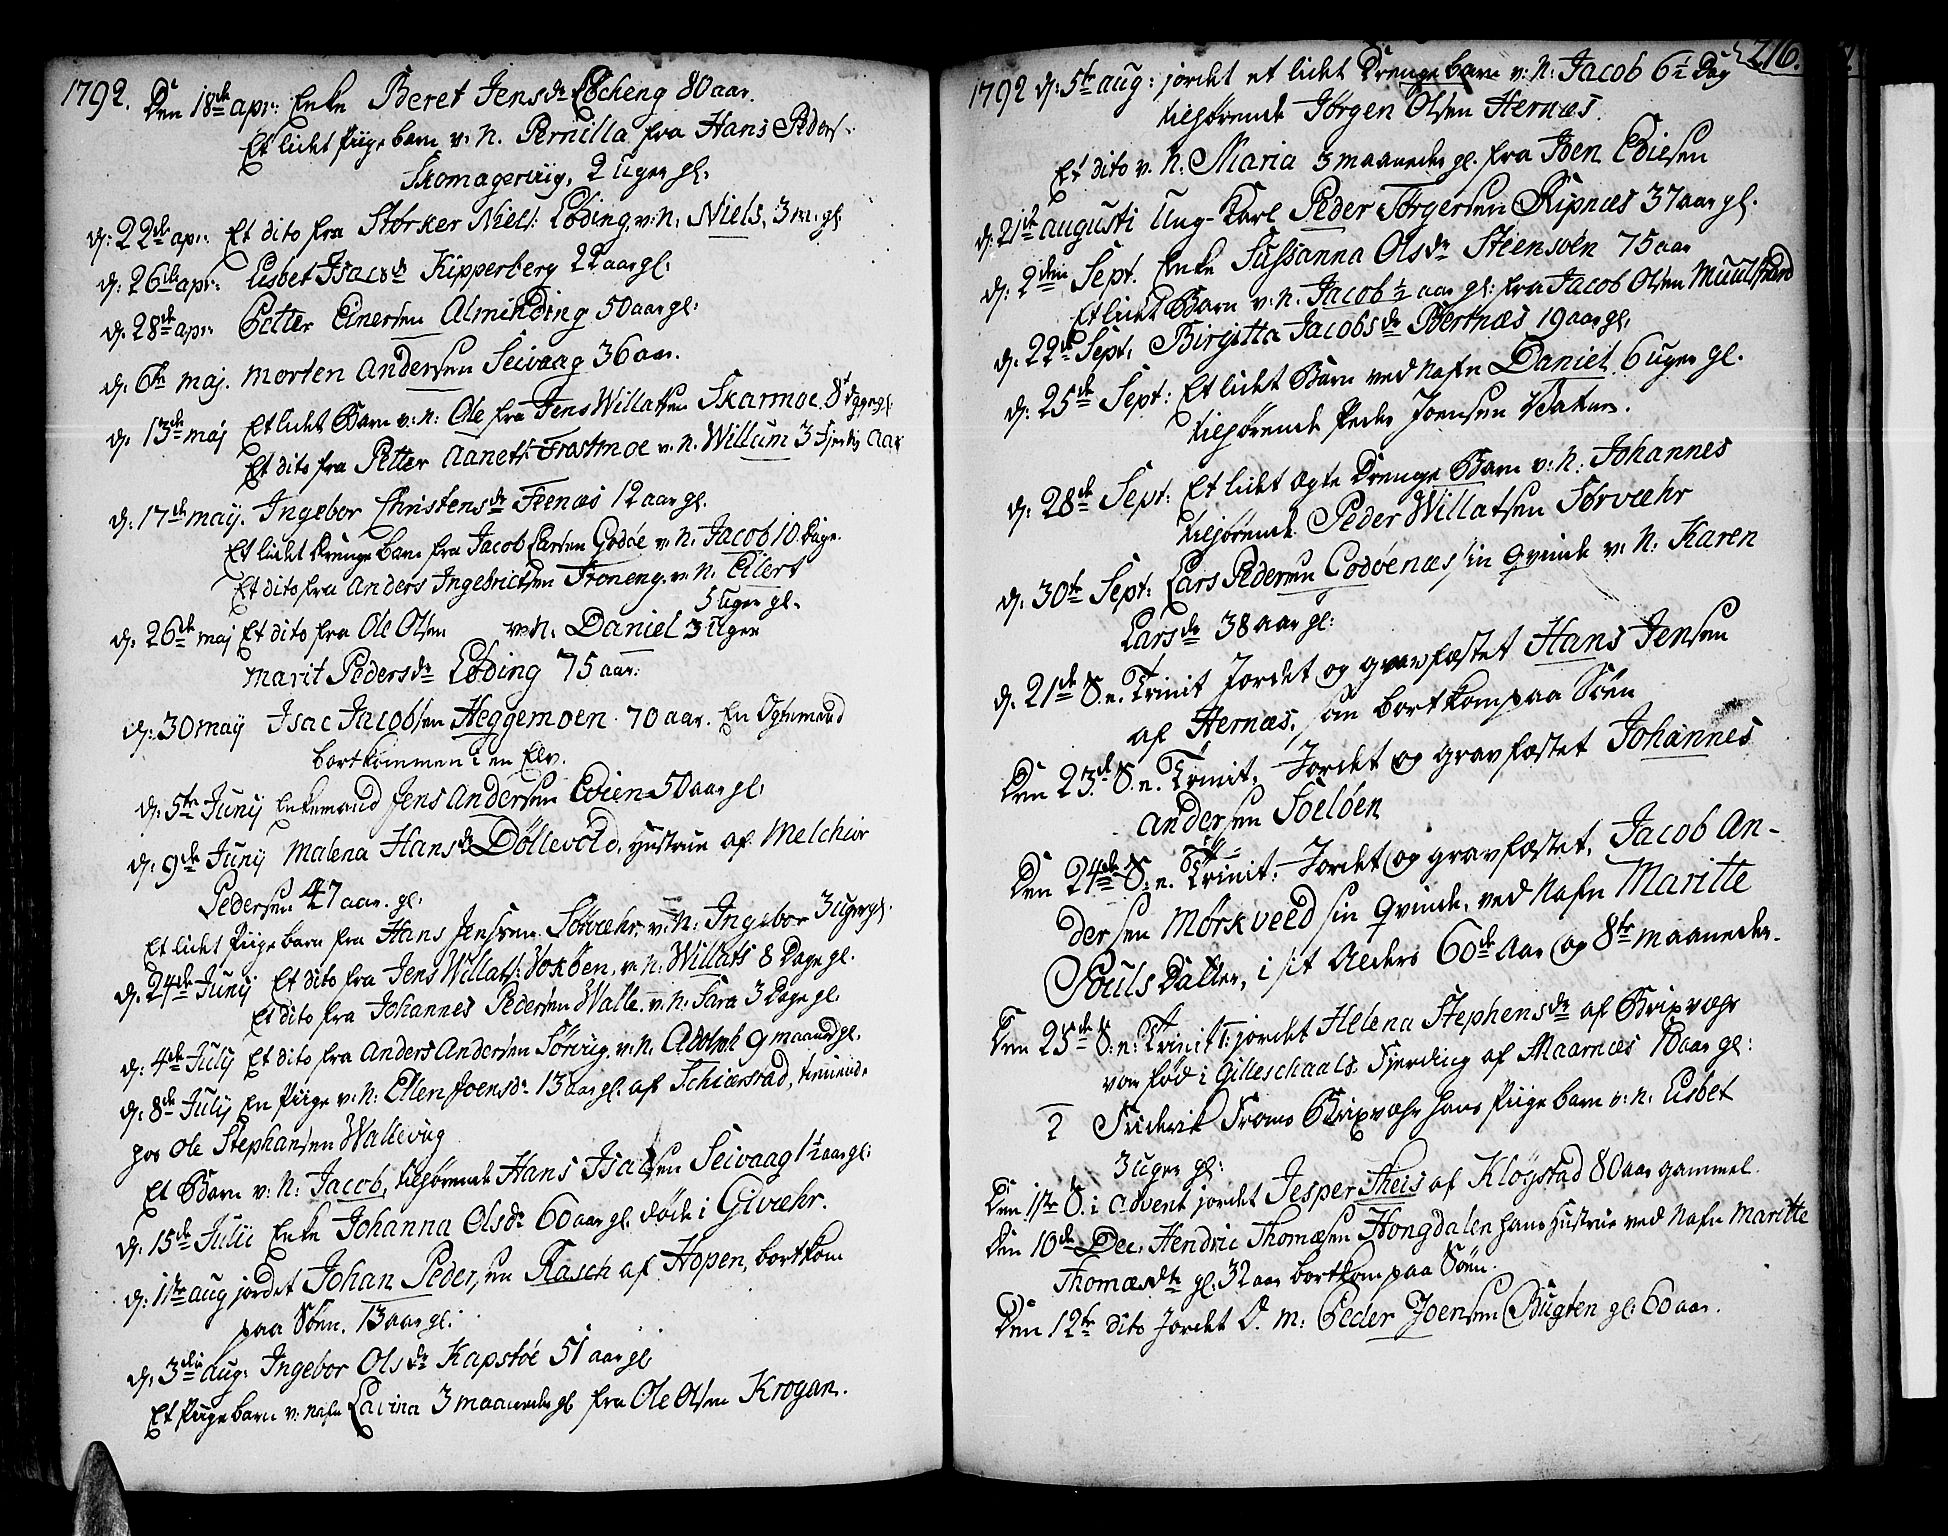 1792. Den 18de apr: Enke Beret Jensdr Løcheng 80 aar.
Et lidet Piige barn v: N. Pernilla fra Hans Peders:
Skomagerviig, 2 Uger gl.
d: 22de apr: Et dito fra Størker Niels: Løding, v: N. Niels, 3 m: gl
d: 26de apr: Lisbet Isacsdr Kipperberg 22 aar gl:
d: 28de apr: Petter Einersen Alminding 50 aar gl:
d: 6te maj. Morten Andersen Seivaag 36 aar.
d: 13de maj Et lidet Barn v: N: Ole fra Jens Willatsen Skarmoe
Et dito fra Petter Aanets: Frostmoe v. N. Willum 3 Fjerdg Aar
d: 17de maij. Ingebor Christensdr Feenæs 12 aar gl.
Et lidet Drenge barn fra Jacob Larsen Godøe v: N: Jacob 10 Dage.
Et dito fra Anders Ingebrictsen Troneng. v: N: Eilert
5 Uger gl.
d: 26de maj Et dito fra Ole Olsen v: N. Daniel 3 Uger
Marit Pedersdr Løding 75 aar:
d: 30 maij Isac Jacobsen Heggemoen 70 aar. En Ægtemand
bortkommen i en Elv.
d: 5te Junij Enkemand Jens Andersen Evien 50 aar gl:
d: 9de Junij Malena Hansdr Döllevold, Hustrue af Melchior
Pedersen 47 aar. gl:
Et lidet Piige barn fra Hans Jensen Sörværhr, v: N: Ingebor 3 Uger gl.
d: 24de Junij Et dito fra Jens Willats: Voxöen, v: N: Willats 8 Dage gl.
Et dito fra Johannes Pedersen Walle. v: N: Sara 3 Dage gl.
d: 4de Julij Et dito fra Anders Andersen Sörvig. v: N. Adolph 9 maand gl.
d: 8de Julij En Piige v: N: Ellen Joensdr 13 aar gl: af Schiærstad, tienende
hos Ole Stephansen Wallevig
Et Barn v: N: Jacob, tilhørende Hans Isacsen Seivaag 1½ aar gl:
d: 15de Julii Enke Johanna Olsdr 60 aar gl. døde i Givæhr.
d: 1ste aug jordet Johan Pedersen Rasch af Hopen, bortkom
paa Söen. 13 aar gl:
d: 3die aug: Ingebor Olsdr Kapstøe 51 aar gl
Et Piige barn v: Nafn Lavina 3 maaneder gl. fra Ole Olsen Krogan.
216.
1792 d: 5te aug: jordet et lidet Drenge barn v: N: Jacob 6½ Dag
tilhørende Jørgen Olsen Hernæs.
Et dito v. N: Maria 3 maaneder gl. fra Joen Eviesen
d: 21de augusti Ung-Karl Peder Torgersen Ripnæs 37 aar gl.
d: 2den Sept. Enke Sussanna Olsdr Steensöen 75 aar
Et lidet Barn v: N. Jacob ½ aar gl: fra Jacob Olsen Muulstrand
d: 22de Sept. Birgitta Jacobsdr Bertnæs 19 aar gl.
d: 25de Sept: Et lidet Barn ved Nafn Daniel 6 Uger gl.
tilhørende Peder Joensen Vatten.
d: 28de Sept: Et lidet ægte Drenge Barn v: N: Johannes
tilhørende Peder Willatsen Sörværhr
d: 30te Sept: Lars Pedersen Godøenæs sin Qvinde v: N: Karen
Larsdr 38 aar gl:
d. 21de S. e. Trinit Jordet og gravfæstet Hans Jensen
af Hernæs, som bortkom paa Söen
Den 23de S. e. Trinit. Jordet og gravfæstet Johannes
Andersen Soelöen
Den 24de S. e. Trinit. Jordet og gravfæstet, Jacob An-
dersen Mörkveed sin Qvinde, ved Nafn Maritte
Pouls Datter, i sit Alders 60de Aar og 8te maaneder.
Den 25de S. e. Trinit: jordet Helena Stephensdr af Brixvæhr
var fød i Gilleschaals Fjerding af Maarnæs 18 aar gl:
2 Friderik Froms Brixvæhr hans Piige barn v: N: Lisbet
3 Uger gl:
Den 1ste S. i Advent jordet Jesper Theis af Kløgstad 80 aar gammel.
Den 10de Dec. Hendric Thomæsen Hongdalen hans Hustrue ved Nafn Maritte
Thomæsdtr gl: 32 aar bortkom paa Söen.
Den 12te dito Jordet D. M: Peder Joensen Bugten gl: 60 aar.